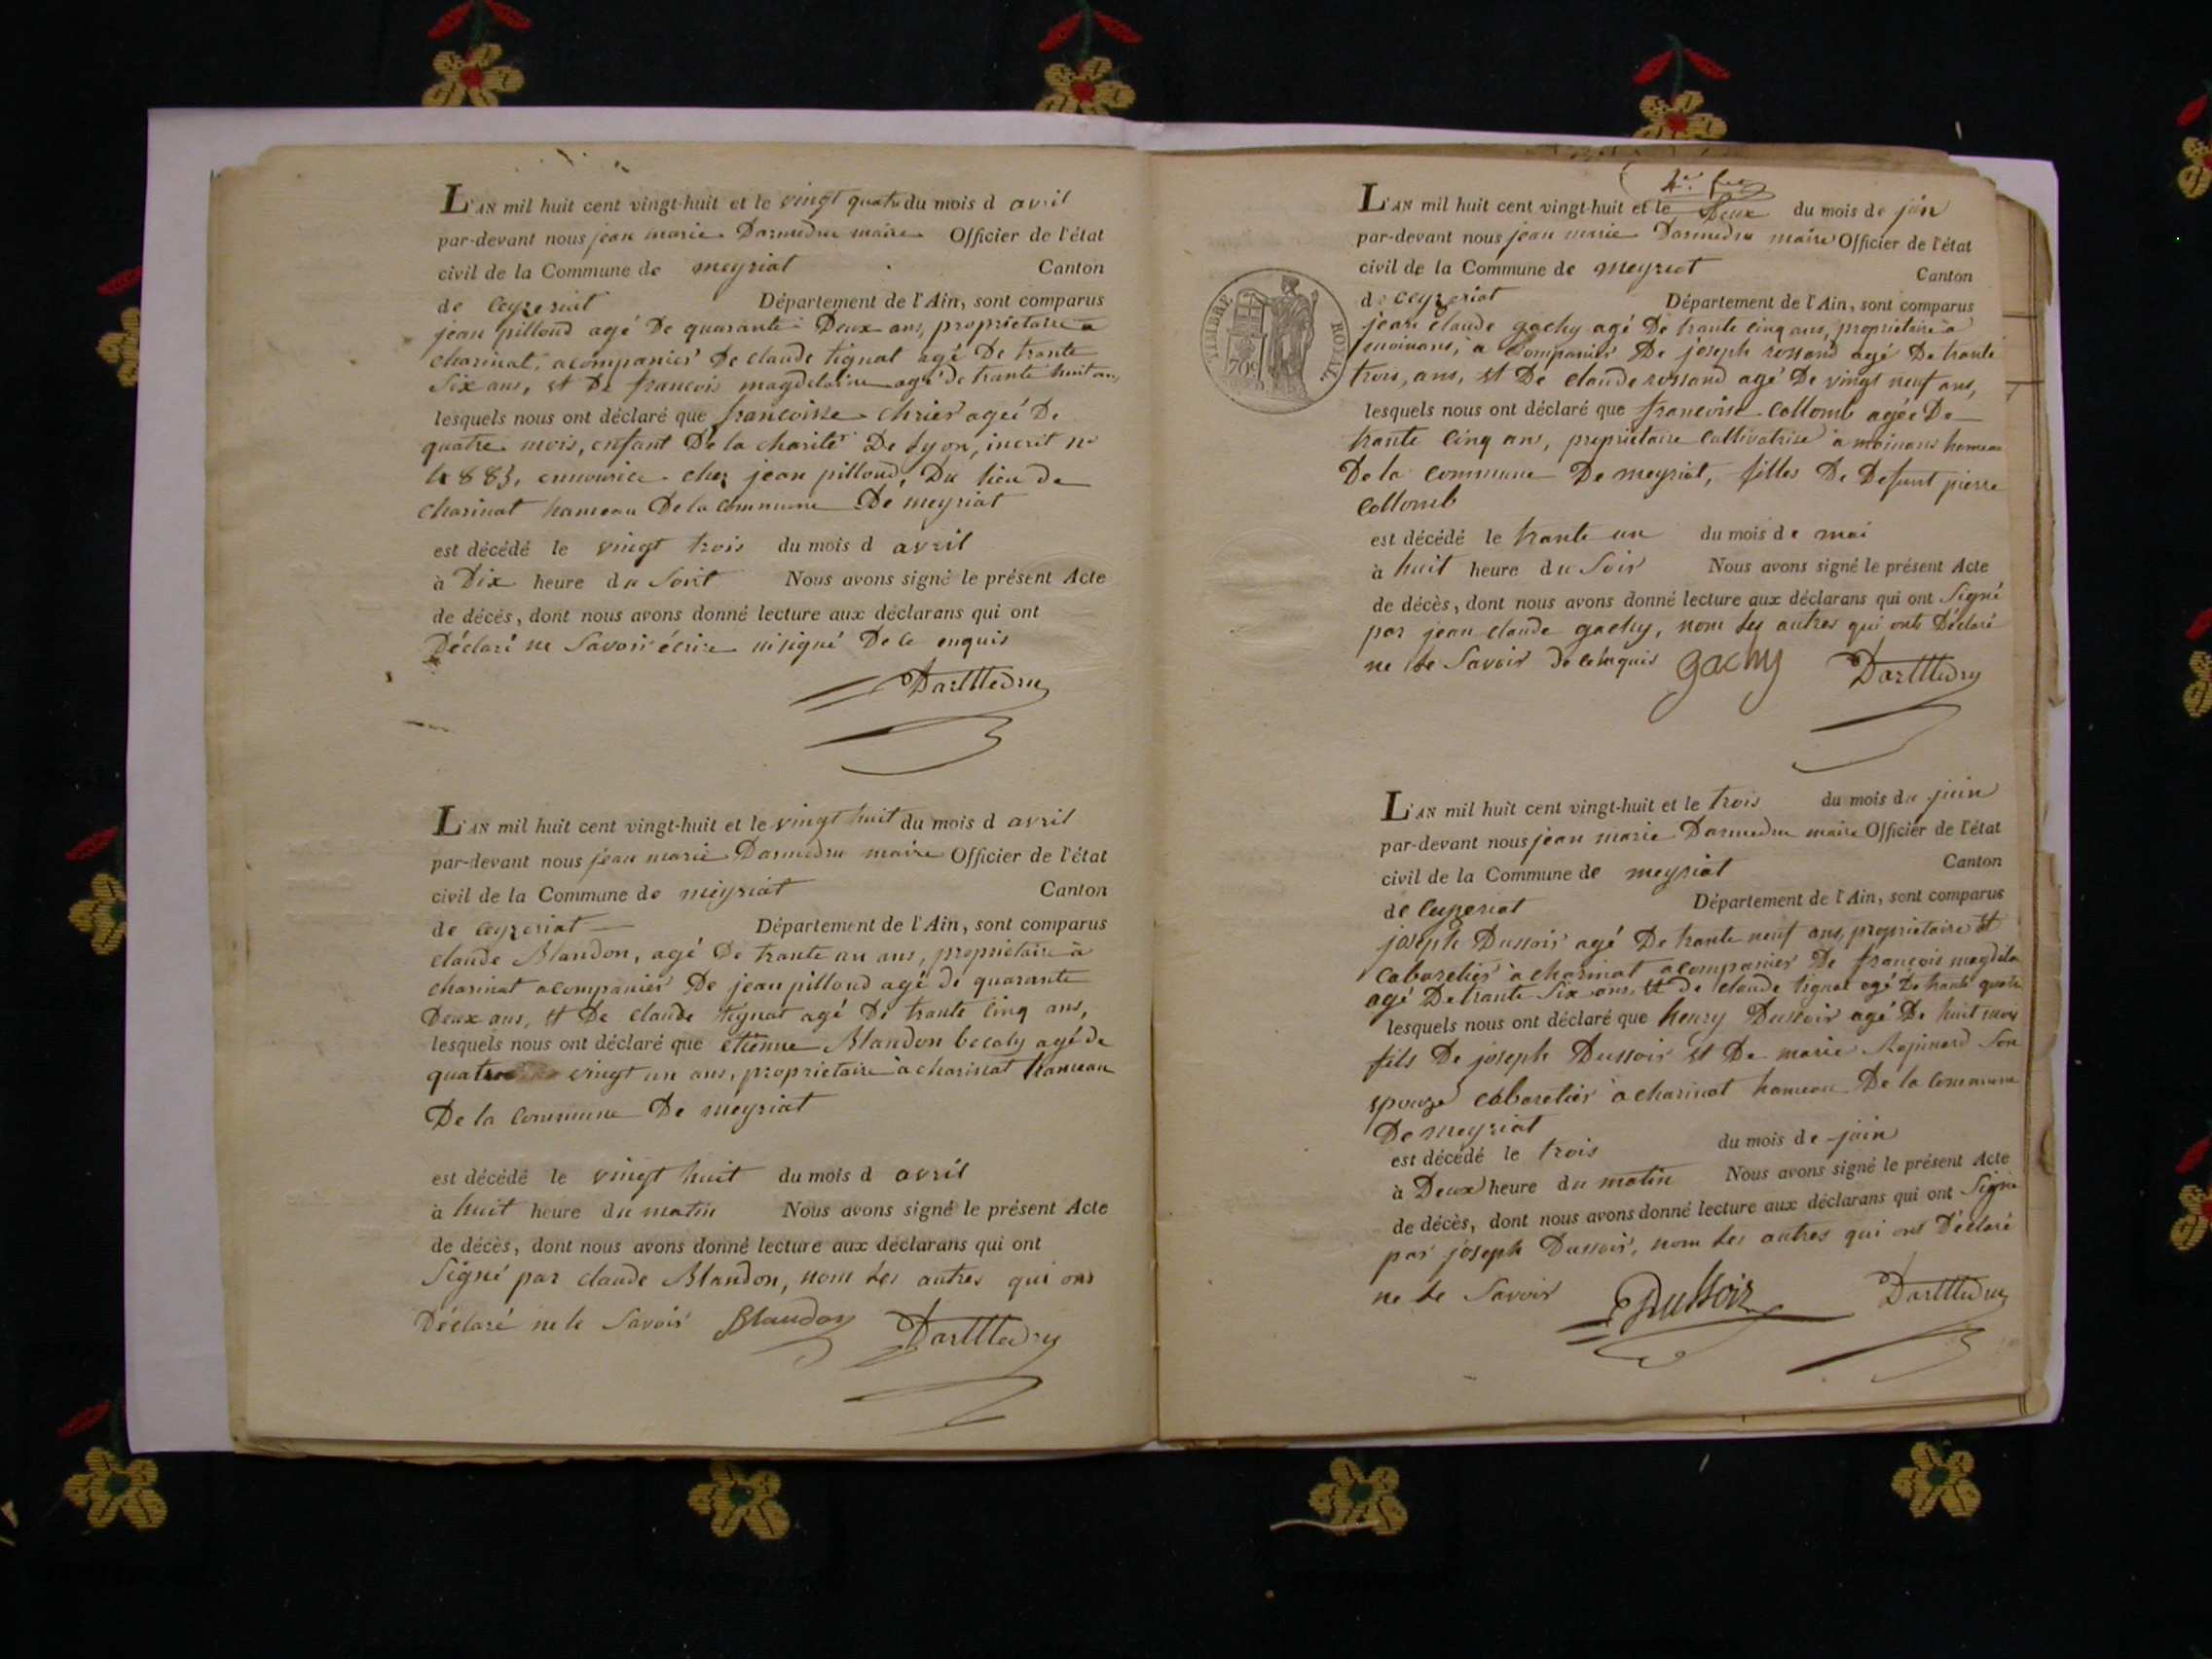 L'AN mil huit cent vingt-huit et le vingt quatre du mois d avril
par-devant nous jean marie Darmedru maire Officier de l'état
civil de la Commune de meyriat Canton
de ceyzeriat Département de l'Ain, sont comparus
jean pilloud agé De quarante Deux ans, proprietaire a
charinat, acompanier De claude tignat agé De trante
Six ans, et De francois magdelaine agé de trante huit ans,
lesquels nous ont déclaré que francoisse chrier ageé De
quatre mois, enfant De la charité De Lyon, incrit no
4883, ennourice chez jean pilloud, Du lieu de
charinat hameau De la commune De meyriat
est décédé le vingt trois du mois d avril
à Dix heure du Soir Nous avons signé le présent Acte
de décès, dont nous avons donné lecture aux déclarans qui ont
Déclaré ne Savoir écrire ni signé De ce enquis
DarMedru
L'AN mil huit cent vingt-huit et le vingt huit du mois d avril
par-devant nous jean marie Darmedru maire Officier de l'état
civil de la Commune de meyriat Canton
de ceyzeriat Département de l'Ain, sont comparus
claude Blandon, agé De trante un ans, proprietaire à
charinat acompanier De jean pilloud agé de quarante
Deux ans, et De claude tignat agé De trante cinq ans,
lesquels nous ont déclaré que etienne Blandon agé de
quatre vingt un ans, proprietaire à charinat hameau
De la commune De meyriat
est décédé le vingt huit du mois d avril
à huit heure du matin Nous avons signé le présent Acte
de décès, dont nous avons donné lecture aux déclarans qui ont
Signé par claude Blandon, nom les autres qui ons
Déclaré ne le Savoir Blandon DarMedru
L'AN mil huit cent vingt-huit et le Deux du mois de join
par-devant nous jean marie Darmedru maire Officier de l'état
civil de la Commune de meyriat Canton
de ceyzeriat Département de l'Ain, sont comparus
TIMBRE ROYAL
70c
jean claude gachy agé De trante cinq ans, proprietaire a
moinans, a companier De joseph rossand agé De trante
trois, ans, et De claude rossand agé De vingt neuf ans,
lesquels nous ont déclaré que francoise collomb agée De
trante cinq ans, proprietaire cultivatrise a moinans hameau
De la commune De meyriat, filles De Defunt pierre
collomb
est décédé le trante un du mois de mai
à huit heure du Soir Nous avons signé le présent Acte
de décès, dont nous avons donné lecture aux déclarans qui ont Signé
par jean claude gachy, nom les autres qui onts Déclaré
ne le Savoir de ce enquis gachy DarMedru
L'AN mil huit cent vingt-huit et le trois du mois de juin
par-devant nous jean marie Darmedru maire Officier de l'état
civil de la Commune de meyriat Canton
de ceyzeriat Département de l'Ain, sont comparus
joseph Dussoir agé De trante neuf ans, proprietaire et
cabaretier à charinat acompanier De françois magdela
agé De trante Six ans, et De claude tignat agé De trante quatre
lesquels nous ont déclaré que henry Dussoir agé De huit mois
fils De joseph Dussoir et De marie Son
epouze cabaretier a charinat hameau De la commune
De meyriat
est décédé le trois du mois de juin
à Deux heure du matin Nous avons signé le présent Acte
de décès, dont nous avons donné lecture aux déclarans qui ont Signé
par joseph Dussoir, nom les autres qui ons Déclaré
ne le Savoir Dussoir DarMedru